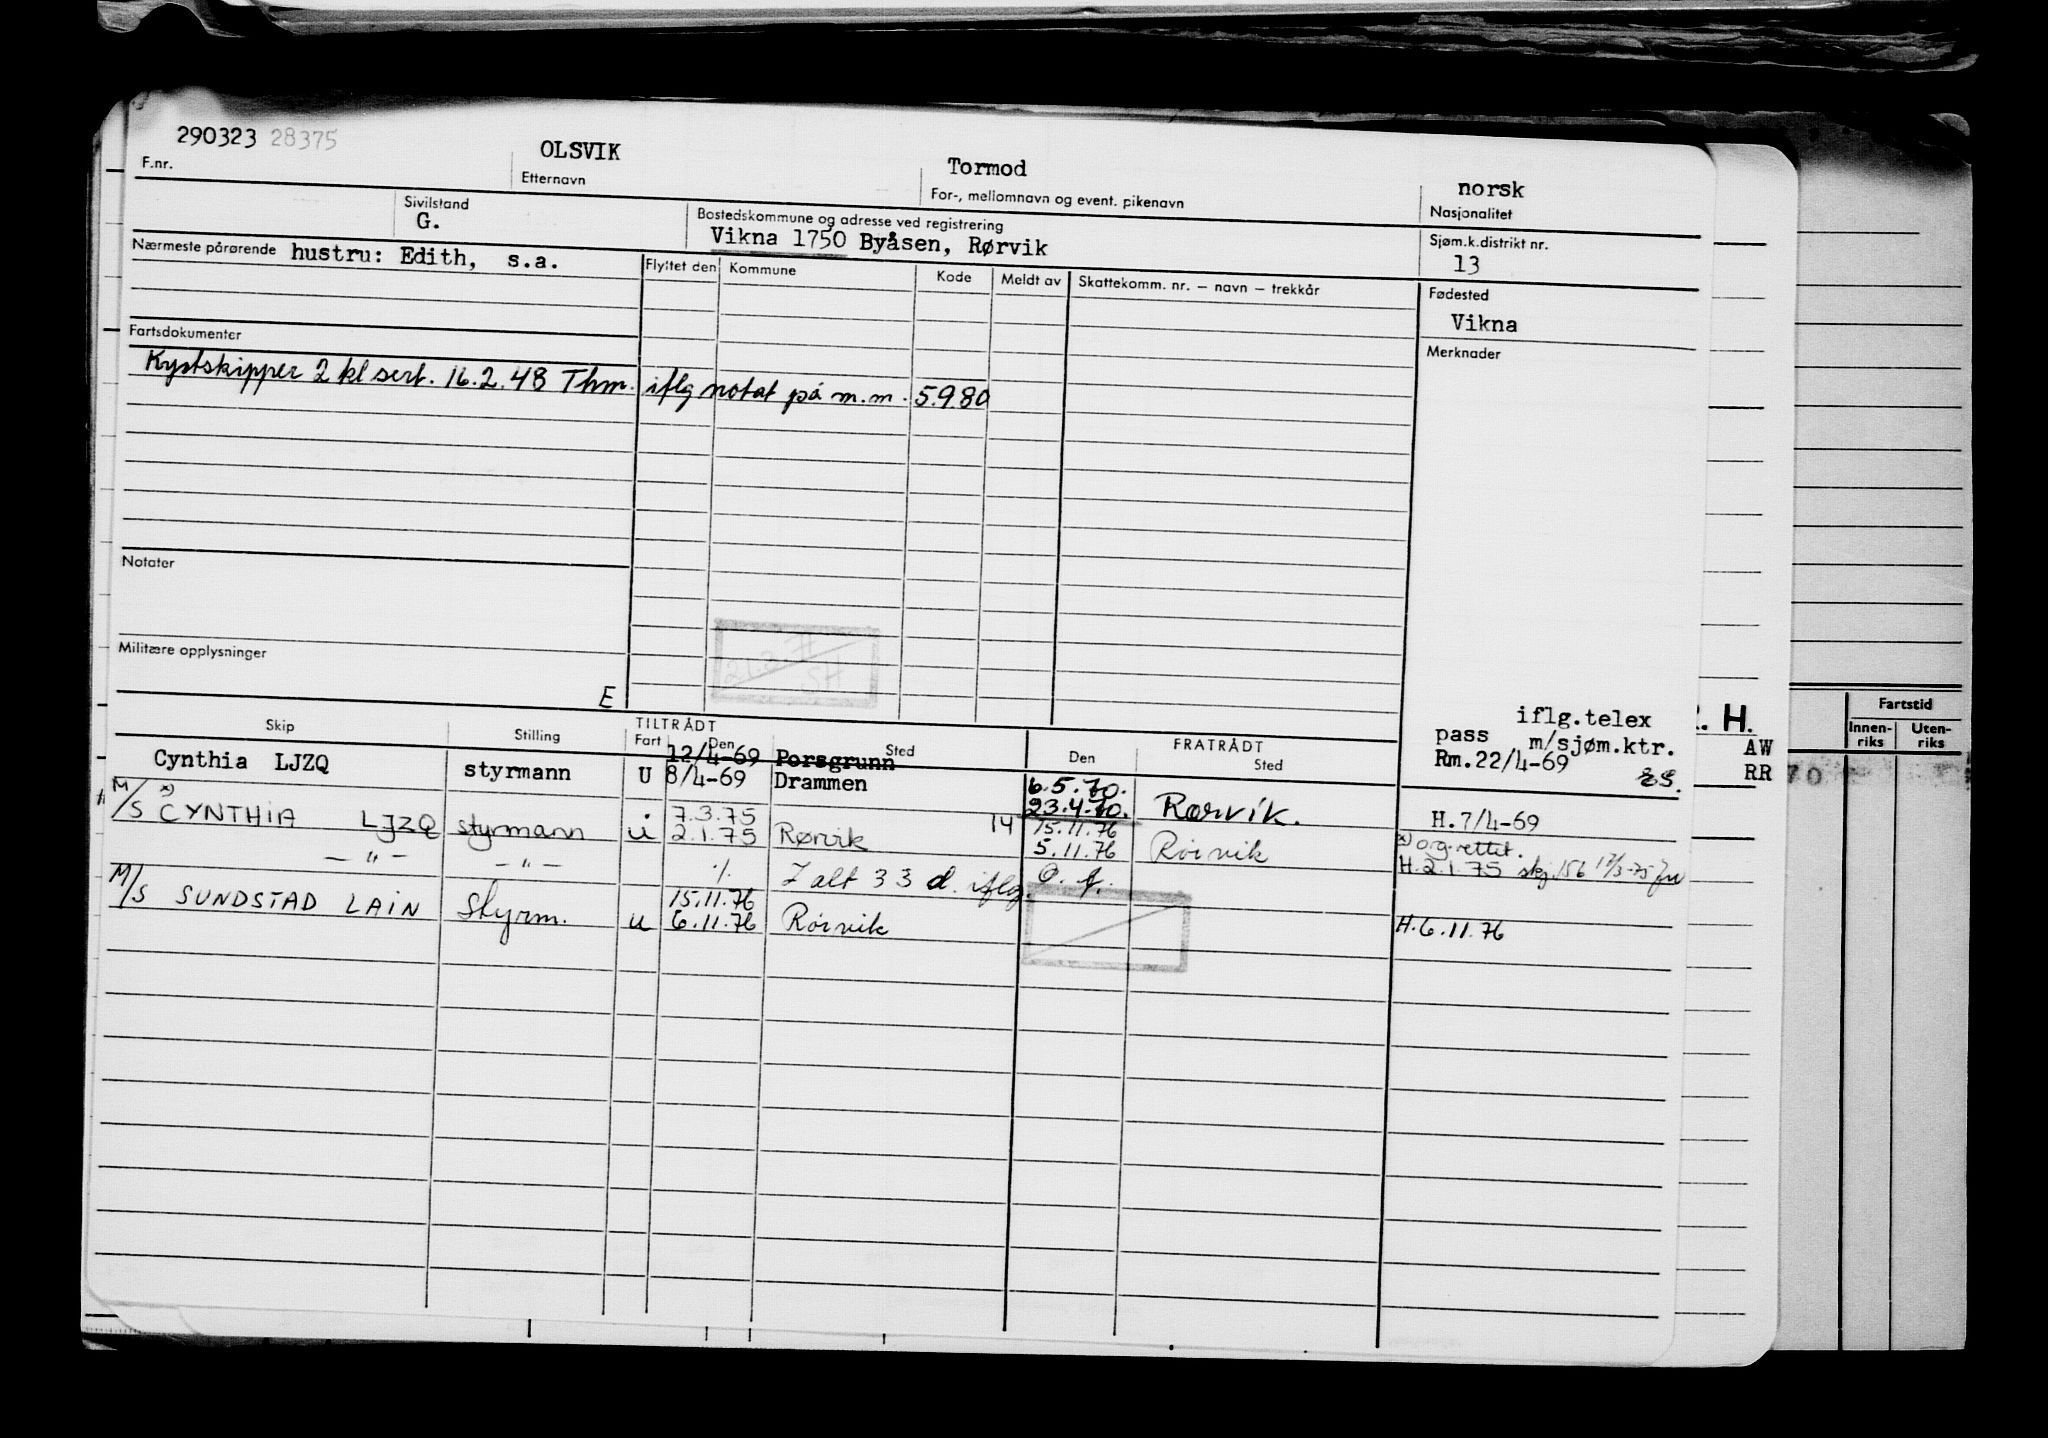 290323 28375 OLSVIK Tormod norsk
F.nr. Etternavn For-, mellomnavn og event. pikenavn Nasjonalitet
Sivilstand Bostedskommune og adresse ved registrering Sjøm.k.distrikt nr.
G. Vikna 1750 Byåsen, Rørvik 13
Nærmeste pårørende hustru: Edith, s.a. Flyttet den Kommune Kode Meldt av Skattekomm. nr. – navn – trekkår Fødested
Vikna
Fartsdokumenter Merknader
Kystskipper 2 kl sert. 16.2.48 Thm. iflg notat på m.m. 5.9.80
Notater
Militære opplysninger
E
iflg.telex
pass m/sjøm.ktr.
Rm.22/4-69
Skip Stilling TILTRÅDT Fart Den Sted FRATRÅDT Den Sted
12/4-69 Porsgrunn
Cynthia LJZQ styrmann U 8/4-69 Drammen 6.5.70.
23.4.70. Rørvik. H.7/4-69
M/S x) CYNTHIA LJZQ styrmann u 7.3.75
2.1.75 Rørvik 14 15.11.76
5.11.76 Rørvik x) og rettet.
H.2.1.75 skj.156 17/3-75
— " — — " — ./. I alt 33 d. iflg. O. f.
M/S SUNDSTAD LAIN Styrm. u 15.11.76
6.11.76 Rørvik H.6.11.76
R. H.
AW
RR
70
Fartstid
Innen-riks Uten-riks